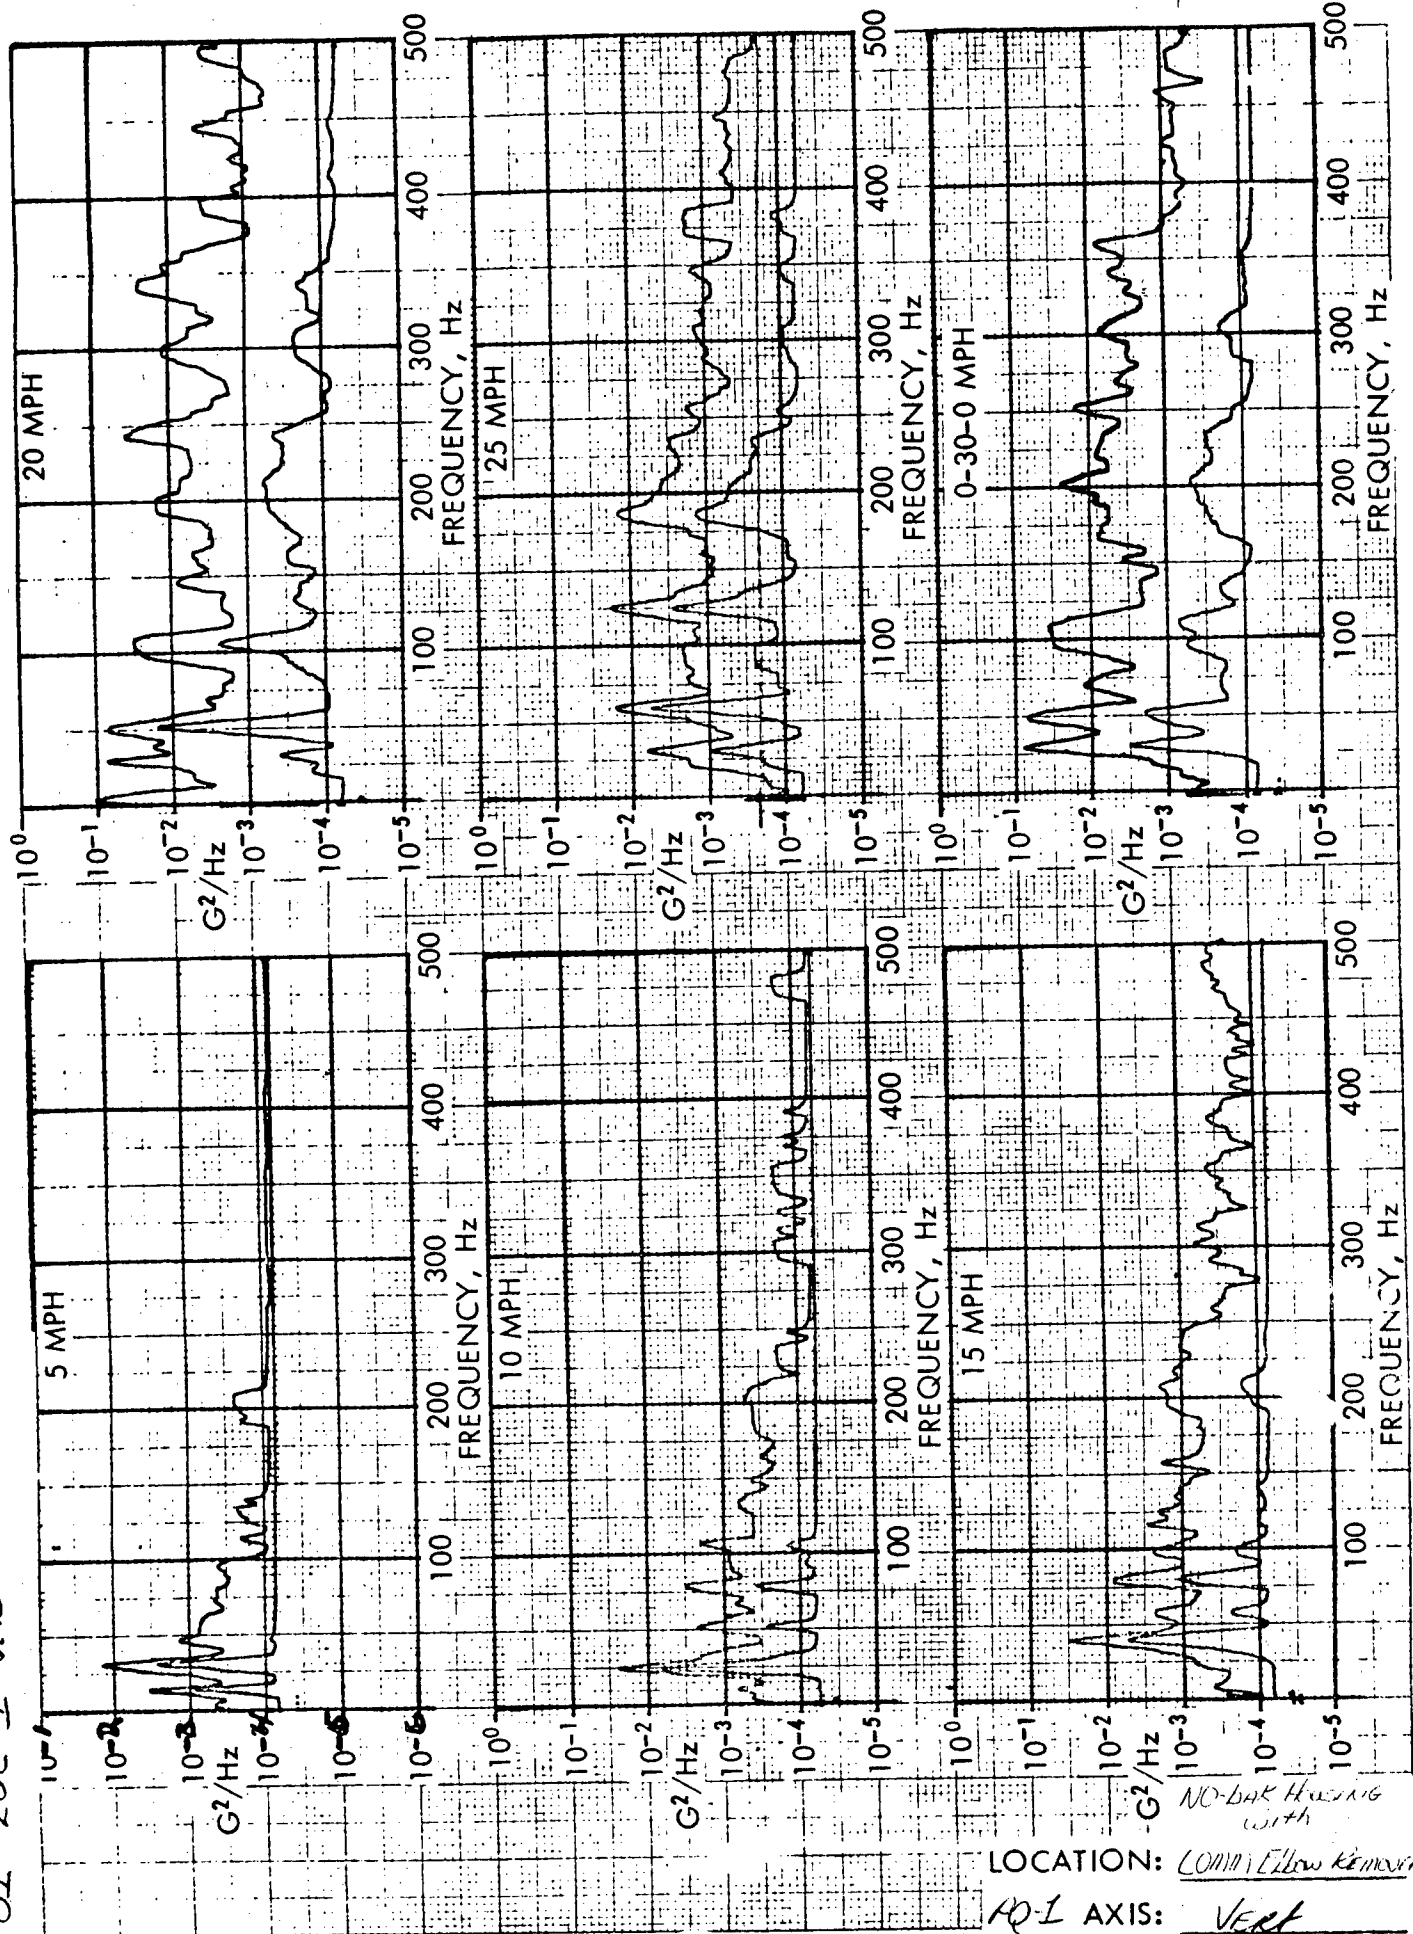 5 MPH
10-1
10-2
10-3
10-4
10-5
10-6
G²/Hz
100 200 300 400 500
FREQUENCY, Hz
10 MPH
10⁰
10⁻¹
10⁻²
10⁻³
10⁻⁴
10⁻⁵
G²/Hz
100 200 300 400 500
FREQUENCY, Hz
15 MPH
10⁰
10⁻¹
10⁻²
10⁻³
10⁻⁴
10⁻⁵
G²/Hz
100 200 300 400 500
FREQUENCY, Hz
20 MPH
10⁰
10⁻¹
10⁻²
10⁻³
10⁻⁴
10⁻⁵
G²/Hz
100 200 300 400 500
FREQUENCY, Hz
25 MPH
10⁰
10⁻¹
10⁻²
10⁻³
10⁻⁴
10⁻⁵
G²/Hz
100 200 300 400 500
FREQUENCY, Hz
0-30-0 MPH
10⁰
10⁻¹
10⁻²
10⁻³
10⁻⁴
10⁻⁵
G²/Hz
100 200 300 400 500
FREQUENCY, Hz
NO-BAK HOUSING
with
LOCATION: Comm Elbow Remove
PQ-1 AXIS: VERT